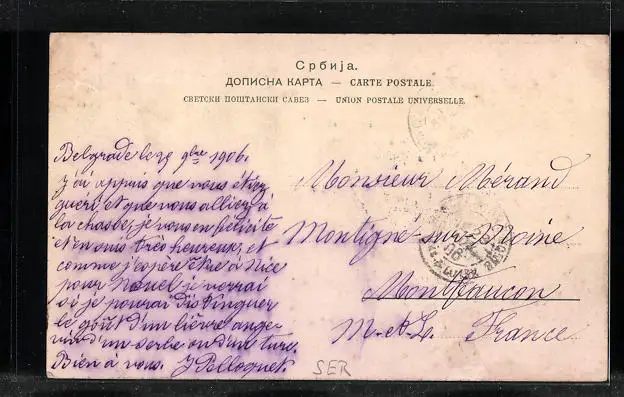 Србија.
ДОПИСНА КАРТА — CARTE POSTALE.
СВЕТСКИ ПОШТАНСКИ САВЕЗ — UNION POSTALE UNIVERSELLE.
Belgrade le 29 9bre 1906.
J'ai appris que vous étiez
guéri et que vous alliez à
la chasse, je vous en félicite
et en suis très heureux, et
comme j'espère être à Nice
pour Nouel je verrai
si je pourai distinguer
le goût d'un lièvre ange-
vin d'un serbe ou d'un turc.
Bien à vous. J Pelloquet.
Monsieur Mérand
Montigné-sur-Moine
Montfaucon
M.-et-L. France
SER